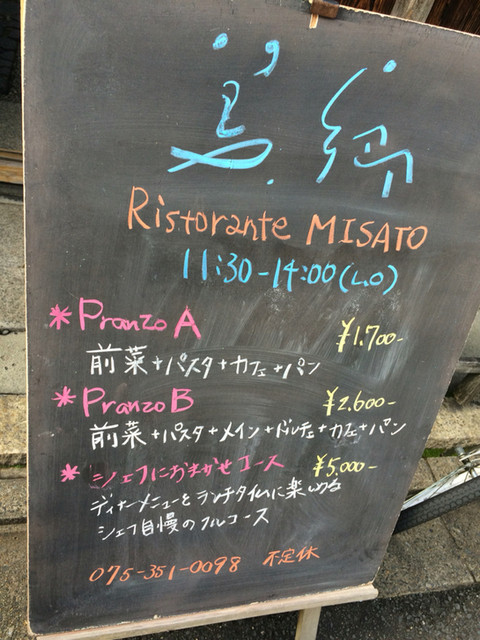 美郷
Ristorante MISATO
11:30-14:00(L.O)
*Pranzo A ¥1.700-
前菜+パスタ+カフェ+パン
*Pranzo B ¥2.600-
前菜+パスタ+メイン+ドルチェ+カフェ+パン
*シェフにおまかせコース ¥5,000-
ディナーメニューをランチタイムに楽しめる
シェフ自慢のフルコース
075-351-0098 不定休